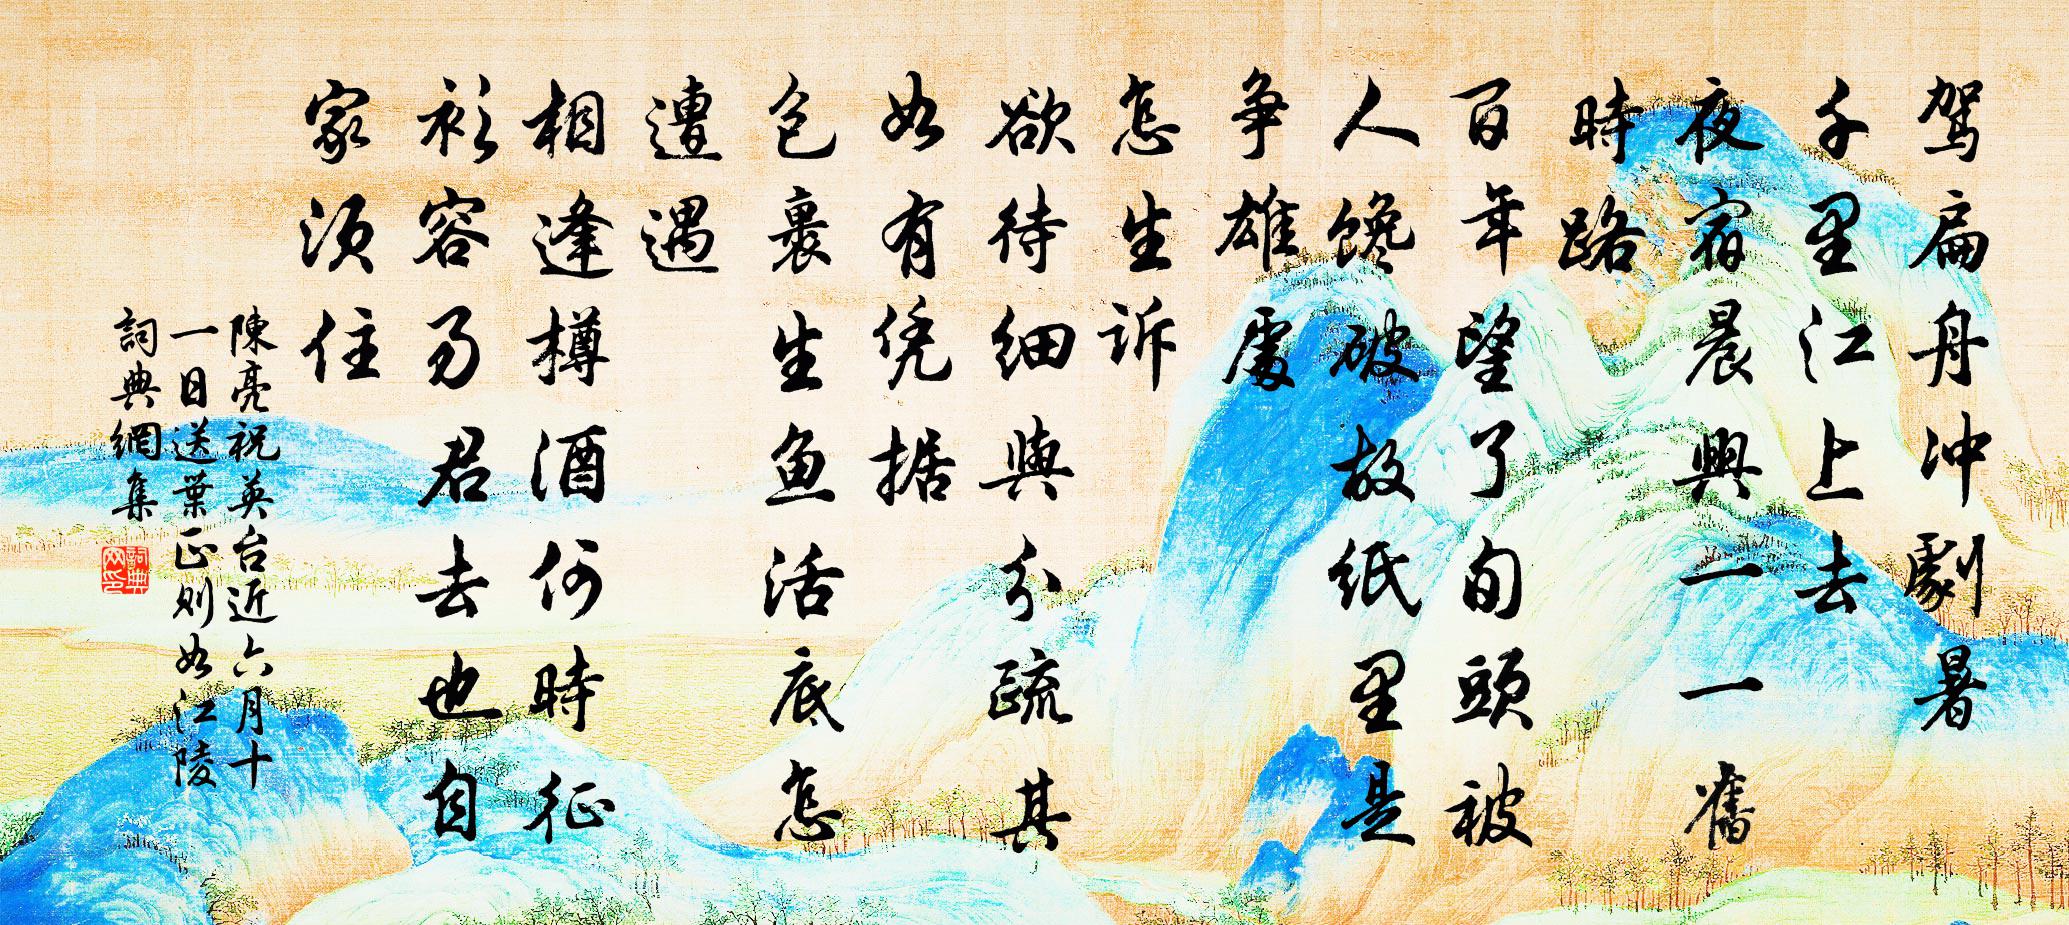 駕扁舟冲劇暑
千里江上去
夜宿晨興一一舊
時路
百年望了旬頭被
人馋破故紙里是
争雄處
怎生訴
欲待细與分疏其
如有凭据
包裹生鱼活底怎
遭遇
相逢樽酒何時征
衫容易君去也自
家須住
陳亮祝英台近六月十
一日送葉正则如江陵
詞典網集
詞典
网印